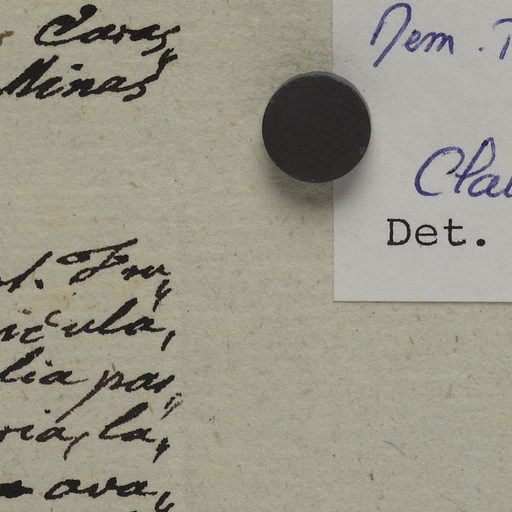 Caras,
Minas
t. Fru,
cula,
lia par,
ria, la,
ova,
Nem. T
Cla
Det.